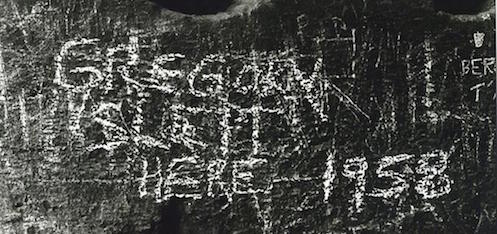 GREGORY
SLEPT
HERE 1958
BER
T